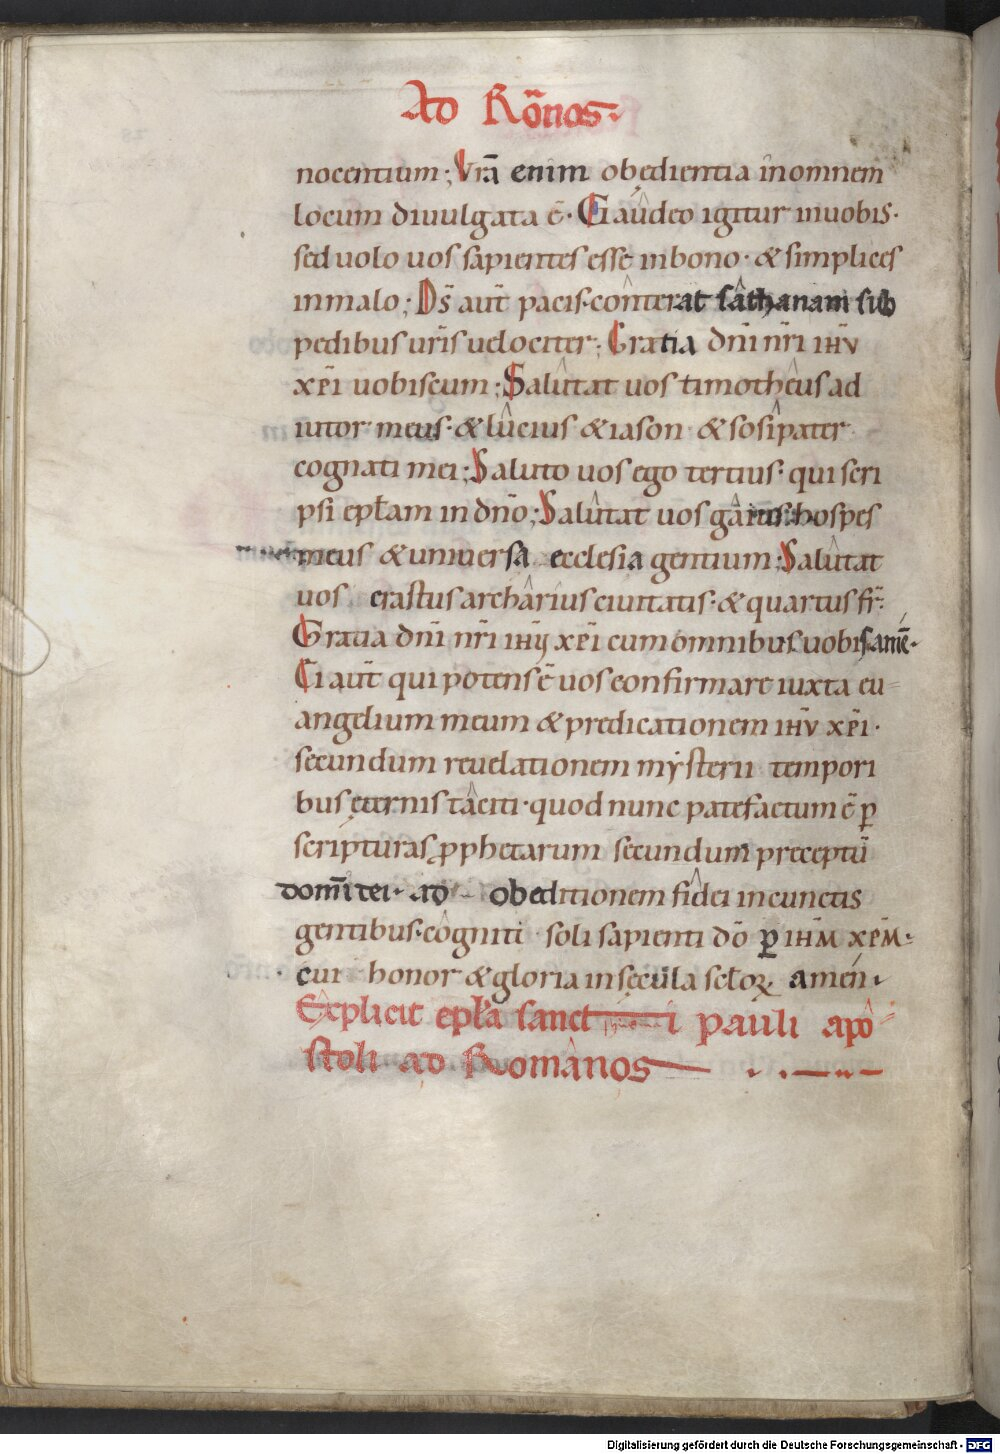 Ad Rōnos·
nocentium; Vrā enim obedientia inomnem
locum diuulgata ē· Gaûdeo igitur inuobis·
sed uolo uos sapientes esse inbono· & simplices
inmalo; Ds̄ aut̄ pacis·conterat sâthanam sub
pedibus ur̄is uelociter; Gratia dn̄i nr̄i ihū
xp̄i uobiscum; Salûtat uos timothêus ad
iutor meus· & lûcius & iason & sosîpater
cognati mei; Saluto uos ego tertius· qui scri
psi epłam in dn̄o; Salûtat uos gâius hospes
meus & uniuersa ecclesia gentium; Salûtat
uos erastus archârius ciuitatis· & quartus fr̄·
Gratia dn̄i nr̄i ihū xp̄i cum omnibus uobis amē·
Ei aut̄ qui potens ē uos confirmare iuxta eu-
angelium meum & predicationem ihū xp̄i·
secundum reuelationem mẏsterii tempori
bus ęternis tâciti·quod nunc patefactum ē ꝑ
scripturas ꝓphetarum secundum preceptū
dom̄i dei· ad obeditionem fidei in cunctis
gentibus·côgniti soli sapienti dō ꝑ ihm̄ xp̄m·
cui honor & gloria in sęcula scłoꝝ· amén·
Explicit epłа sancti pauli apo-
stoli ad Românos
Digitalisierung gefördert durch die Deutsche Forschungsgemeinschaft - DFG